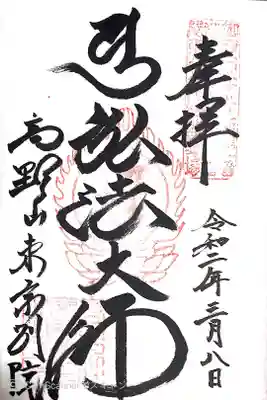 奉拝
令和二年三月八日
弘法大師
高野山東京別院